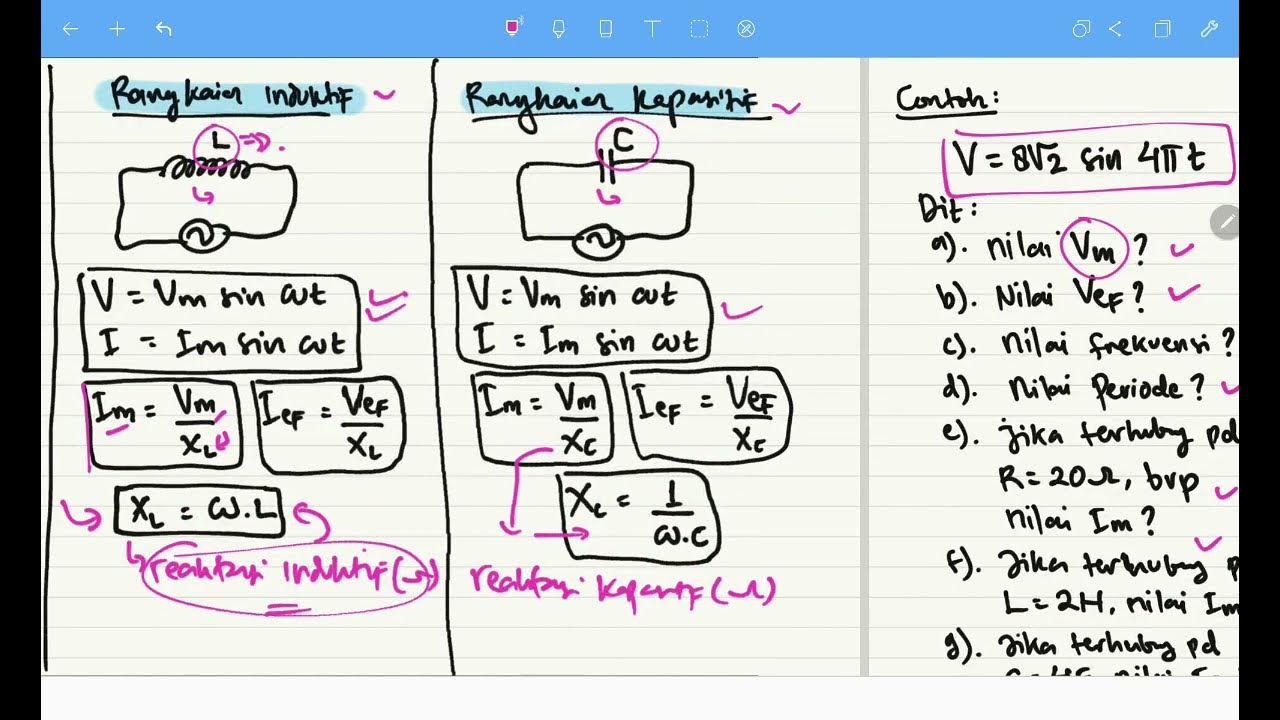 Rangkaian Induktif
L
V = Vm sin ωt
I = Im sin ωt
Im = Vm/XL
Ief = Vef/XL
XL = ω.L
reaktansi Induktif (Ω)
Rangkaian Kapasitif
C
V = Vm sin ωt
I = Im sin ωt
Im = Vm/Xc
Ief = Vef/Xc
Xc = 1/ω.C
reaktansi kapasitif (Ω)
Contoh:
V = 8√2 sin 4π t
Dit:
a). nilai Vm ?
b). Nilai Vef?
c). nilai frekuensi ?
d). nilai Periode ?
e). jika terhubung pd
R = 20Ω, brp
nilai Im ?
f). Jika terhubung p
L = 2H, nilai Im
g). Jika terhubung pd